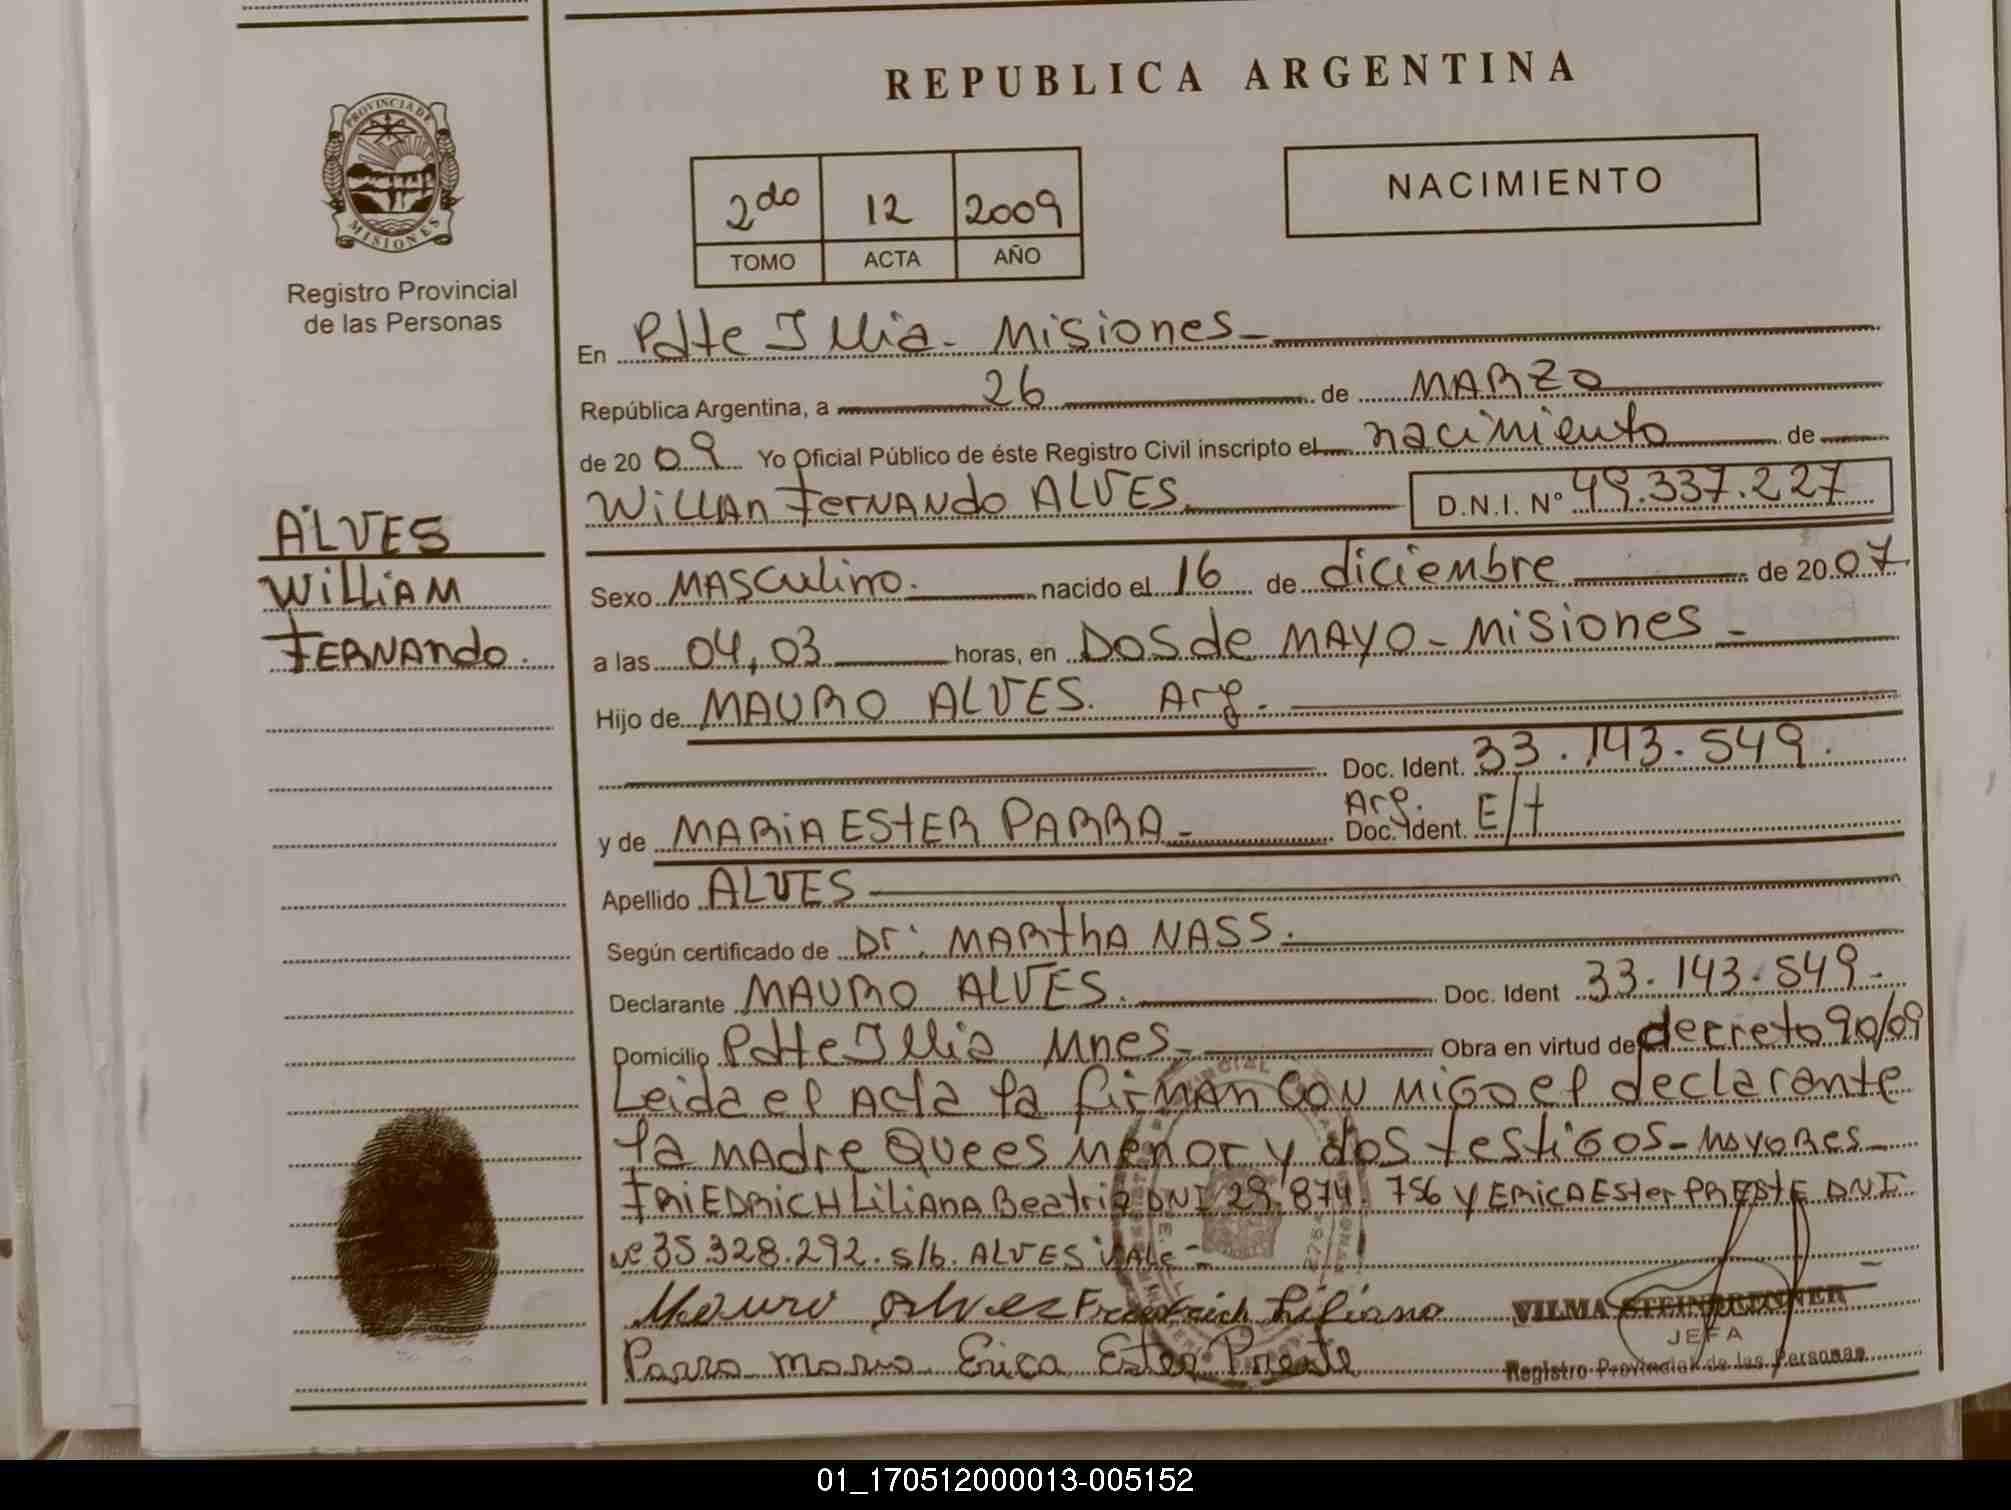 REPUBLICA ARGENTINA
PROVINCIA DE
MISIONES
Registro Provincial
de las Personas
NACIMIENTO
2do 12 2009
TOMO ACTA AÑO
En Pdte Illia - Misiones -
República Argentina, a 26 de MARZO
de 2009 Yo Oficial Público de éste Registro Civil inscripto el nacimiento de
WiLLAn FerNANdo ALVES D.N.I. Nº 49.337.227
ALVES
WilliAM
FERNANdo.
Sexo MASCulino. nacido el 16 de diciembre de 2007
a las 04,03 horas, en DOS de MAYO - Misiones -
Hijo de MAURO ALVES. Arg.
Doc. Ident. 33.143.549.
Arg.
y de MARiA ESTER PARRA - Doc. Ident. E/t
Apellido ALVES
Según certificado de Dr: MARthA NASS.
Declarante MAURO ALVES. Doc. Ident 33.143.549.-
Domicilio Pdte Illia Mnes - Obra en virtud de decreto 90/09
Leida el Acta la firMAN CON MiGo el declarante
la MAdre Que es Menor y dos testiGos - MAyores -
FRiEDRiCH LiLiANA Beatriz DNI 29.874.756 y ERiCA ESter PREStE DNI
Nº 35.328.292. s/b. ALVES VALe -
Mauro Alves Friedrich Liliana
Parra Maria Erica Ester Preste
VILMA STEINBRENNER
JEFA
Registro Provincial de las Personas
01_170512000013-005152